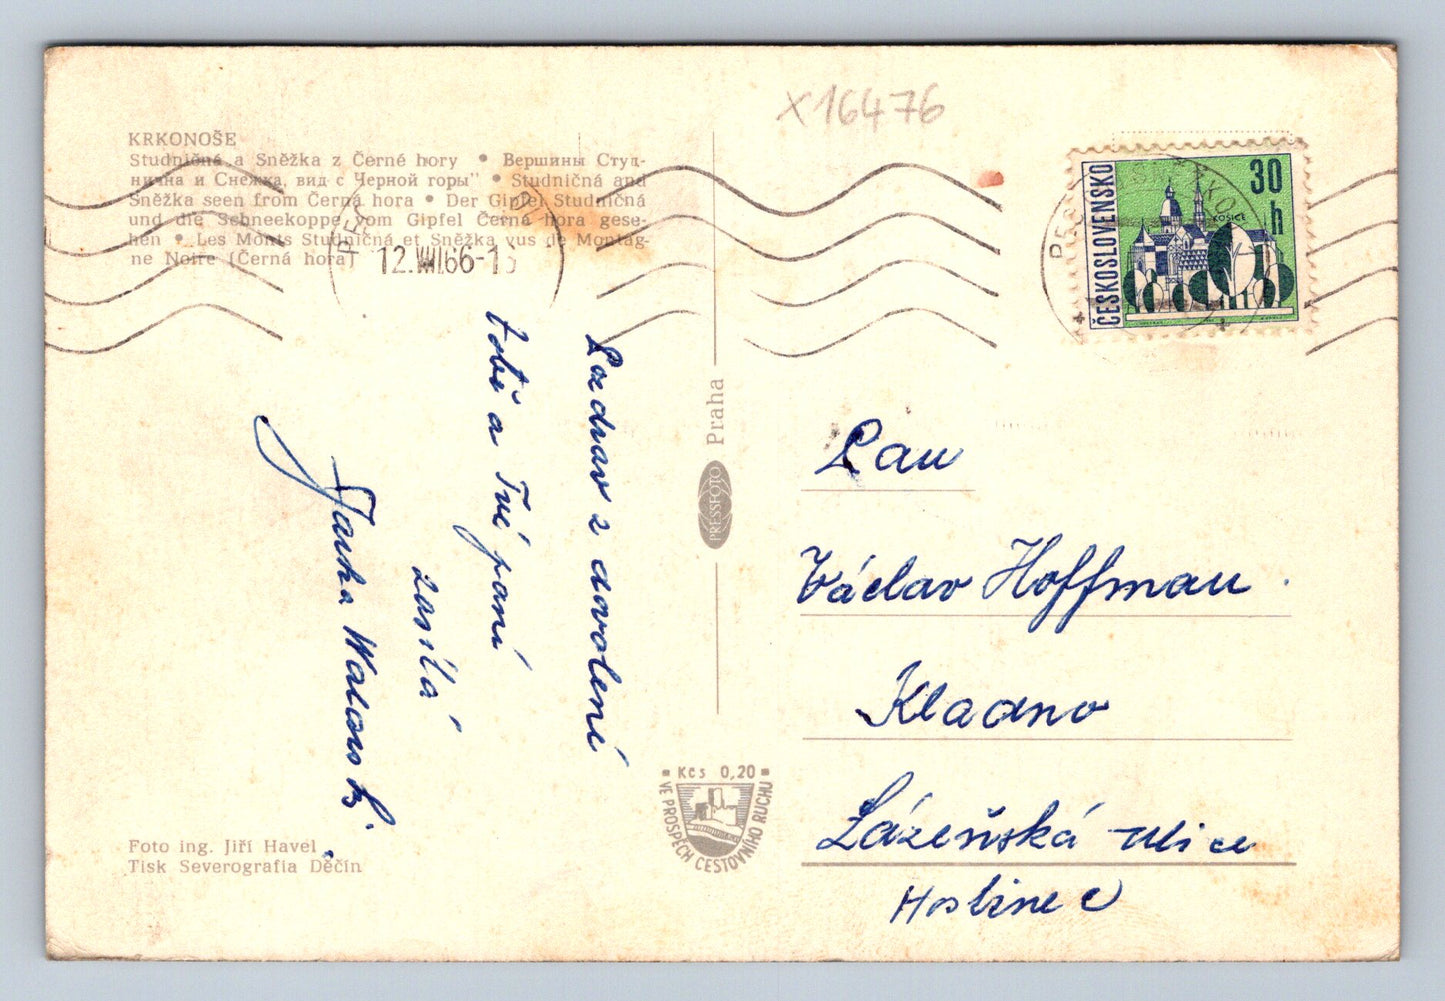 x16476
KRKONOŠE
Studničná a Sněžka z Černé hory • Вершины Студ-
нична и Снежка, вид с Черной горы" • Studničná and
Sněžka seen from Černá hora • Der Gipfel Studničná
und die Schneekoppe vom Gipfel Černá hora gese-
hen • Les Monts Studničná et Sněžka vus de Montag-
ne Noire (Černá hora)
12.VIII.66-1
ČESKOSLOVENSKO
30 h
KOŠICE
Pozdrav z dovolené
tobě a Tvé paní
zasílá
Jarka
Praha
PRESSFOTO
Pan
Václav Hoffman
Kladno
Lázeňská ulice
Hostinec
Kčs 0,20
VE PROSPĚCH CESTOVNÍHO RUCHU
Foto ing. Jiří Havel
Tisk Severografia Děčín